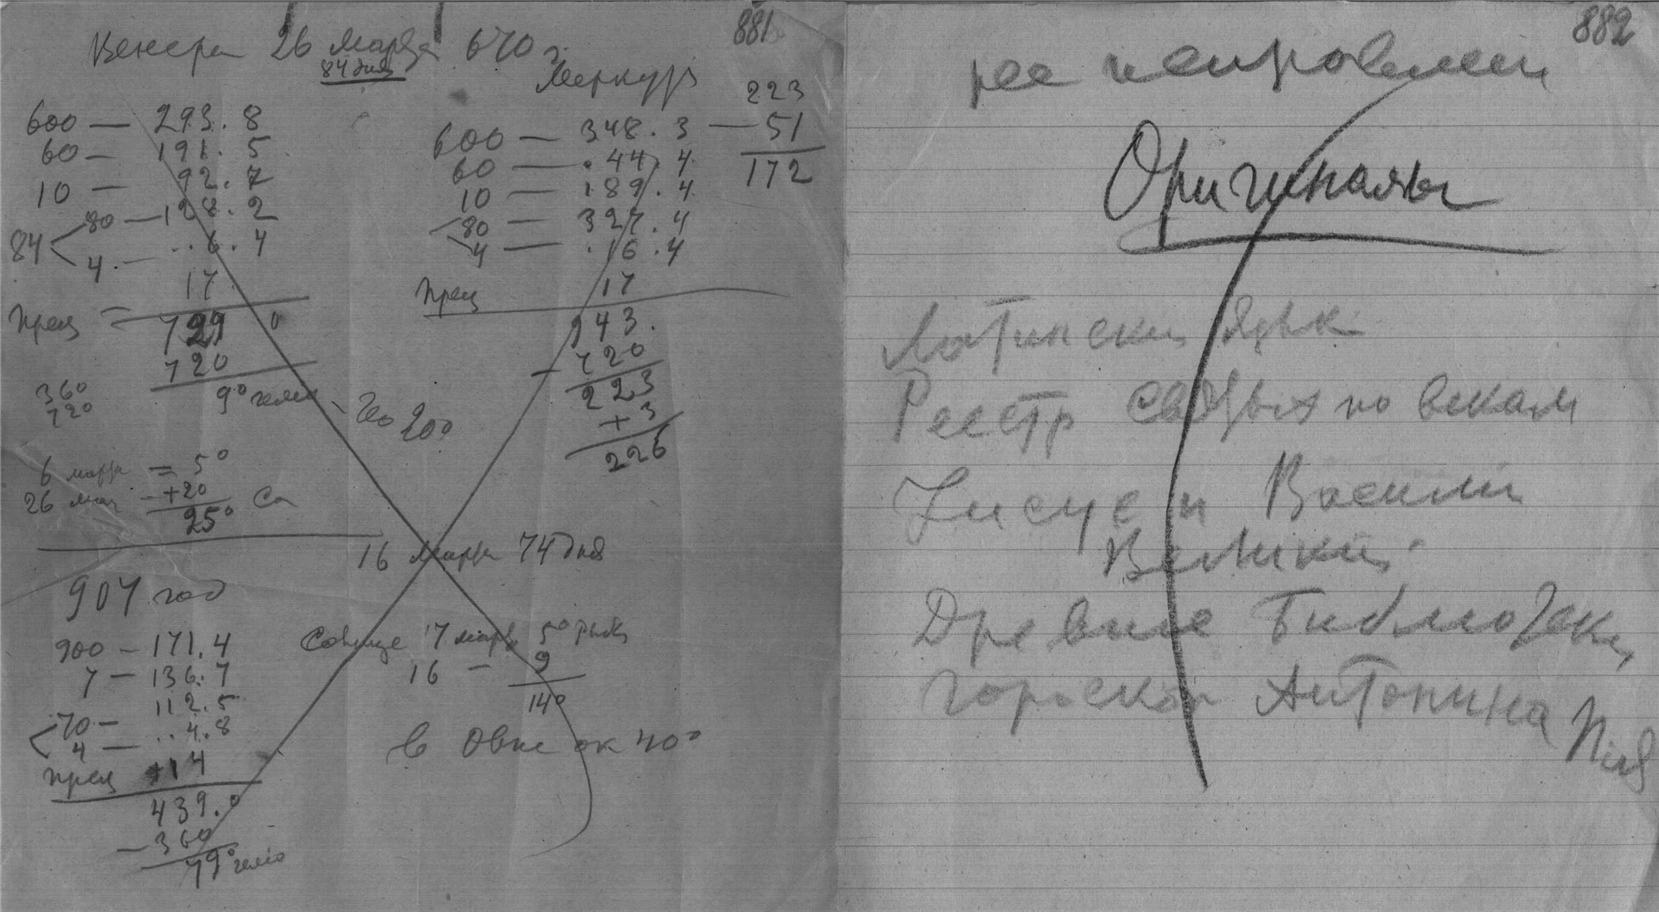 881
Венера 26 марта 670 г.
84 дня
600 — 293.8
60 — 191.5
10 — 92.7
84 < 80 — 128.2
4 — ..6.4
17
Прец
729 0
720
9° гелио
Гео 200
360
720
6 марта = 5°
26 мар +20
25°
Меркур
223
600 — 348.3 — 51
172
60 — .44.4
10 — 189.4
80 — 327.4
4 — .16.4
Прец 17
943.
– 720
223
+3
226
907 год
900 — 171.4
7 — 136.7
70 — 112.5
4 — ..4.8
прец +14
439.0
– 360
79° гелио
16 марта 74 дня
Солнце 7 марта 5° Рыб
16 — 9
14°
в Овне ок 40°
882
Оригиналы
Латински язык
Реестр святых по векам
Иисус и Василий
Великий.
Древние библиотеки,
гороскоп Антонина Пия